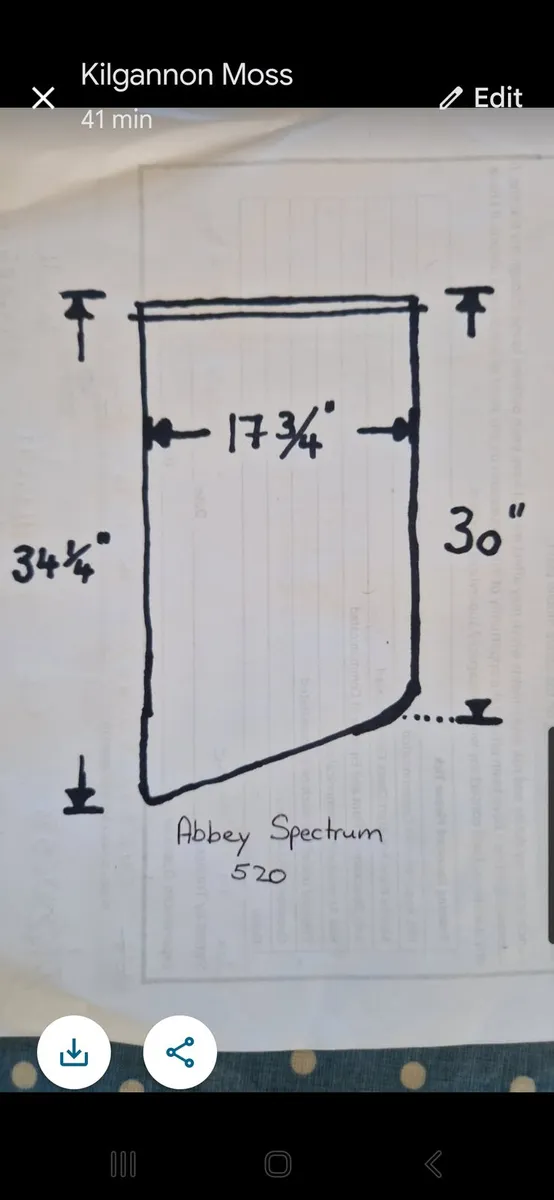 Kilgannon Moss
Edit
41 min
17 3/4"
34 1/4"
30"
Abbey Spectrum
520